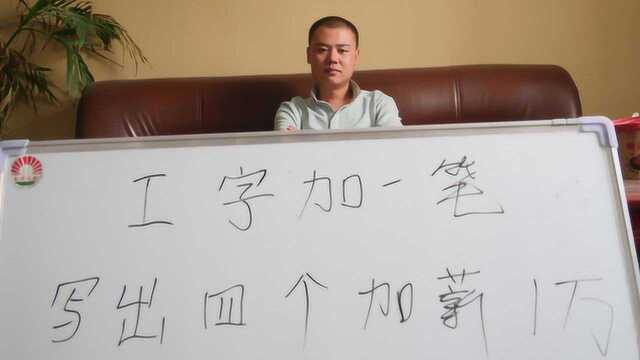 工字加一笔
写出四个加薪1万